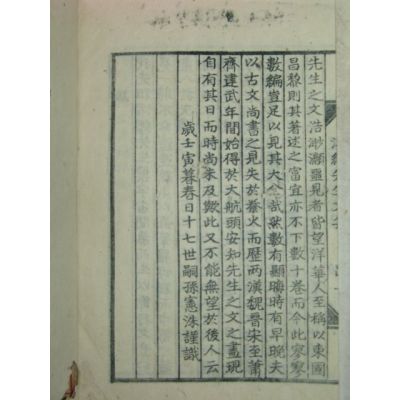 先生之文浩渺灝噩見者皆望洋華人至稱以東國
昌黎則其著述之富宜亦不下數十卷而今此寥寥
數編豈足以見其大仝哉然數有顯晦時有早晚夫
以古文尚書之見失於秦火而歷两漢魏晉宋至蕭
齊建武年間始得於大航頭安知先生之文之盡現
自有其日而時尚未及歟此又不能無望於後人云
歲壬寅暮春日十七世嗣孫憲洙謹識